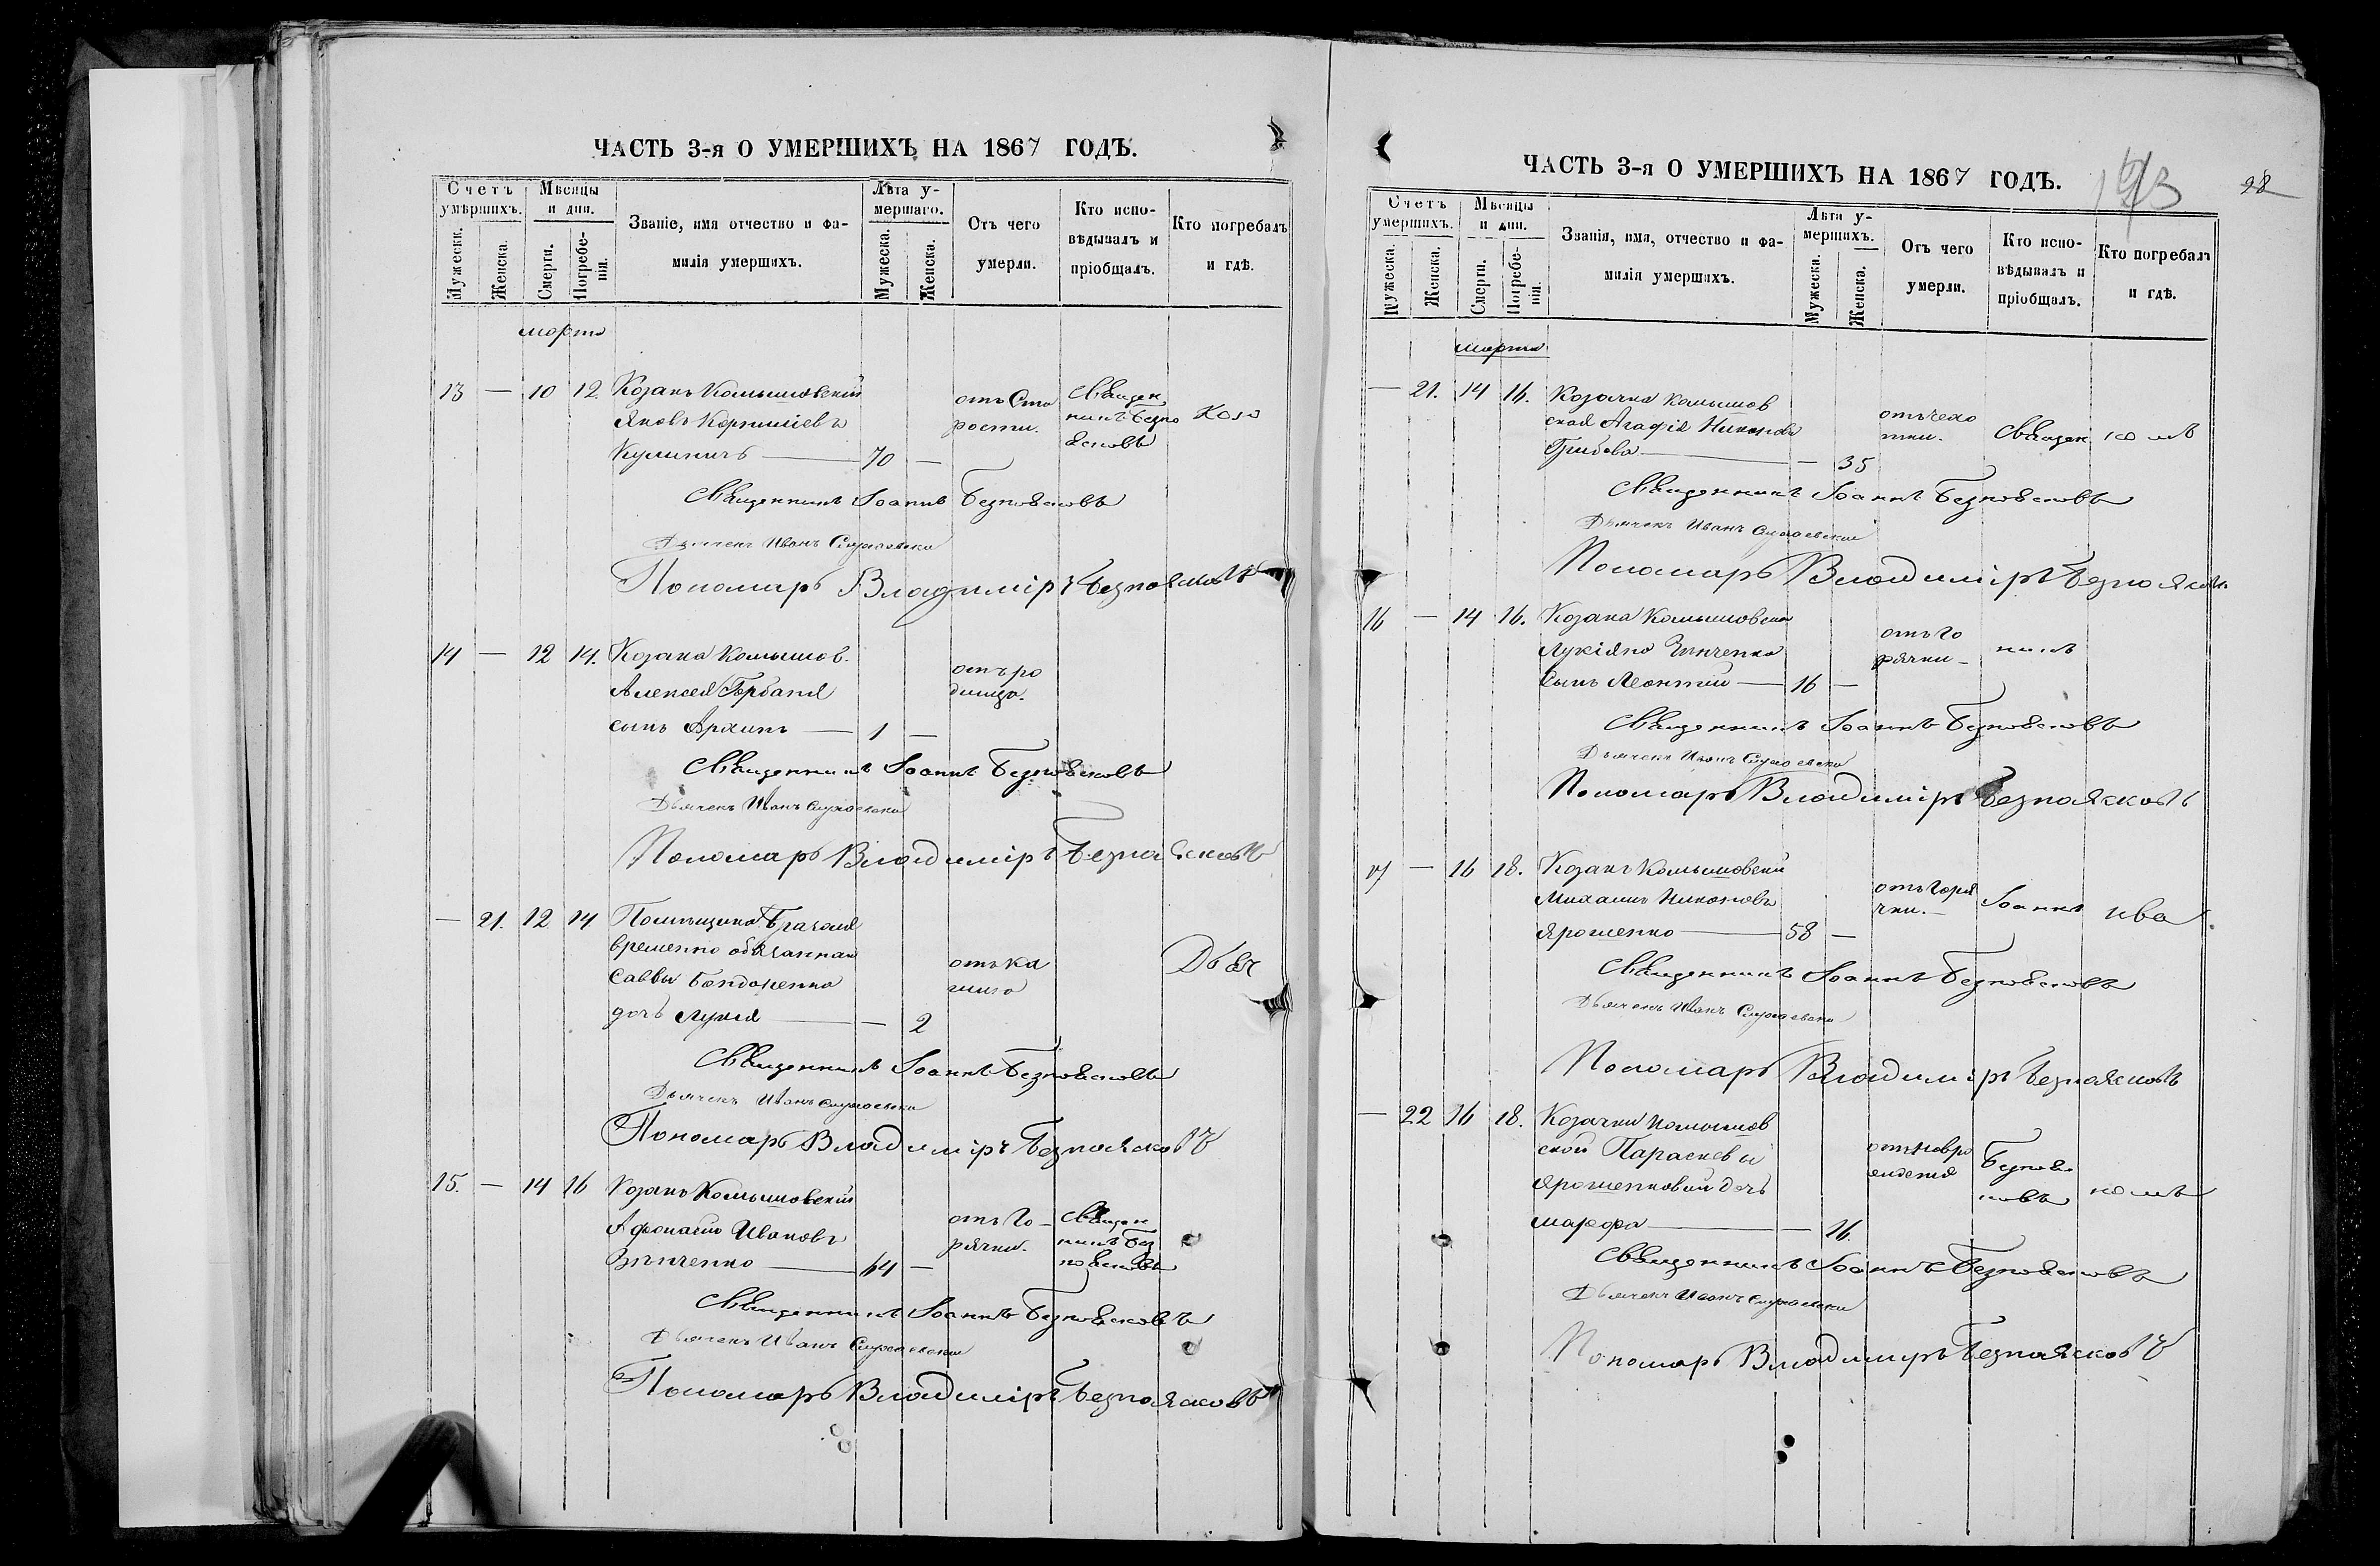 ЧАСТЬ 3-я О УМЕРШИХЪ НА 1867 ГОДЪ.
Счетъ умѣршихъ.
Мужескк.
Женска.
Мѣсяцы и дни.
Смерти.
Погребенія.
Званіе, имя отчество и фамилія умершихъ.
Лѣта умершаго.
Мужеска.
Женска.
Отъ чего умерли.
Кто исповѣдывалъ и пріобщалъ.
Кто погребалъ и гдѣ.
марта
13 — 10 12 Козакъ Комышовскій
Яковъ
Куличъ — 70 —
отъ Старости.
Священникъ Безпоясковъ
Священникъ Іоаннъ Безпоясковъ
Дьячекъ Иванъ
Пономарь Владиміръ Безпоясковъ
14 — 12 14. Козака Комышов.
Алексея Горбаня
сынъ Архипъ — 1 —
отъ родимца.
Священникъ Іоаннъ Безпоясковъ
Дьячекъ Иванъ
Пономарь Владиміръ Безпоясковъ
— 21. 12 14 Помѣщика
временно обязаннаи
Саввы Бондаренка
дочь Лукія — — 2
отъ кашлю
Священникъ Іоаннъ Безпоясковъ
Дьячекъ Иванъ
Пономарь Владиміръ Безпоясковъ
15. — 14 16 Козакъ Комышовскій
Афонасій Ивановъ
Зѣнченко — 64 —
отъ Горячки.
Священникъ Безпоясковъ
Священникъ Іоаннъ Безпоясковъ
Дьячекъ Иванъ
Пономарь Владиміръ Безпоясковъ
ЧАСТЬ 3-я О УМЕРШИХЪ НА 1867 ГОДЪ.
28
Счетъ умершихъ.
Мужеска.
Женска.
Мѣсяцы и дни.
Смерти.
Погребенія.
Званія, имя, отчество и фамилія умершихъ.
Лѣта умершихъ.
Мужеска.
Женска.
Отъ чего умерли.
Кто исповѣдывалъ и пріобщалъ.
Кто погребалъ и гдѣ.
марта
— 21. 14 16. Козачка Комышов
ская Агафія Никонова
Грибова — — 35
отъ чехотки.
Священ
Священникъ Іоаннъ Безпоясковъ
Дьячекъ Иванъ
Пономарь Владиміръ Безпоясковъ
16 — 14 16. Козака Комышовска
Лукіяна Зѣнченка
сынъ Леонтій — 16 —
отъ горячки —
никъ
Священникъ Іоаннъ Безпоясковъ
Дьячекъ Иванъ
Пономарь Владиміръ Безпоясковъ
17 — 16 18. Козакъ Комышовскій
Михаилъ Никоновъ
Ярошенко — 58 —
отъ горячки. —
Іоаннъ
Священникъ Іоаннъ Безпоясковъ
Дьячекъ Иванъ
Пономарь Владиміръ Безпоясковъ
— 22 16 18. Козачки Комышов
ской Параскевы
Ярошенковой дочь
Марфа — — 16.
Безпоясковъ
Священникъ Іоаннъ Безпоясковъ
Дьячекъ Иванъ
Пономарь Владимиръ Безпоясковъ